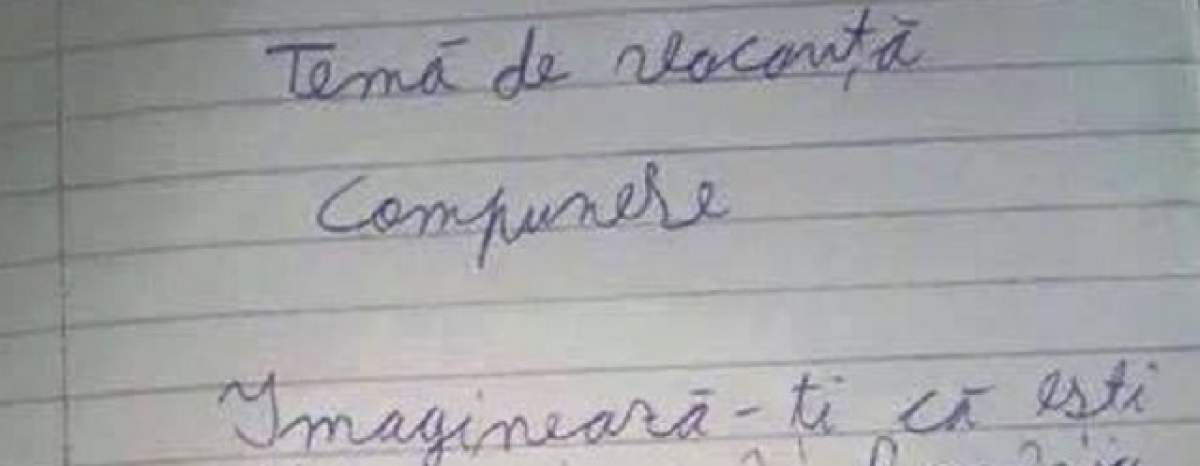 Temă de vacanță
Compunere
Imagineară-ti că ești